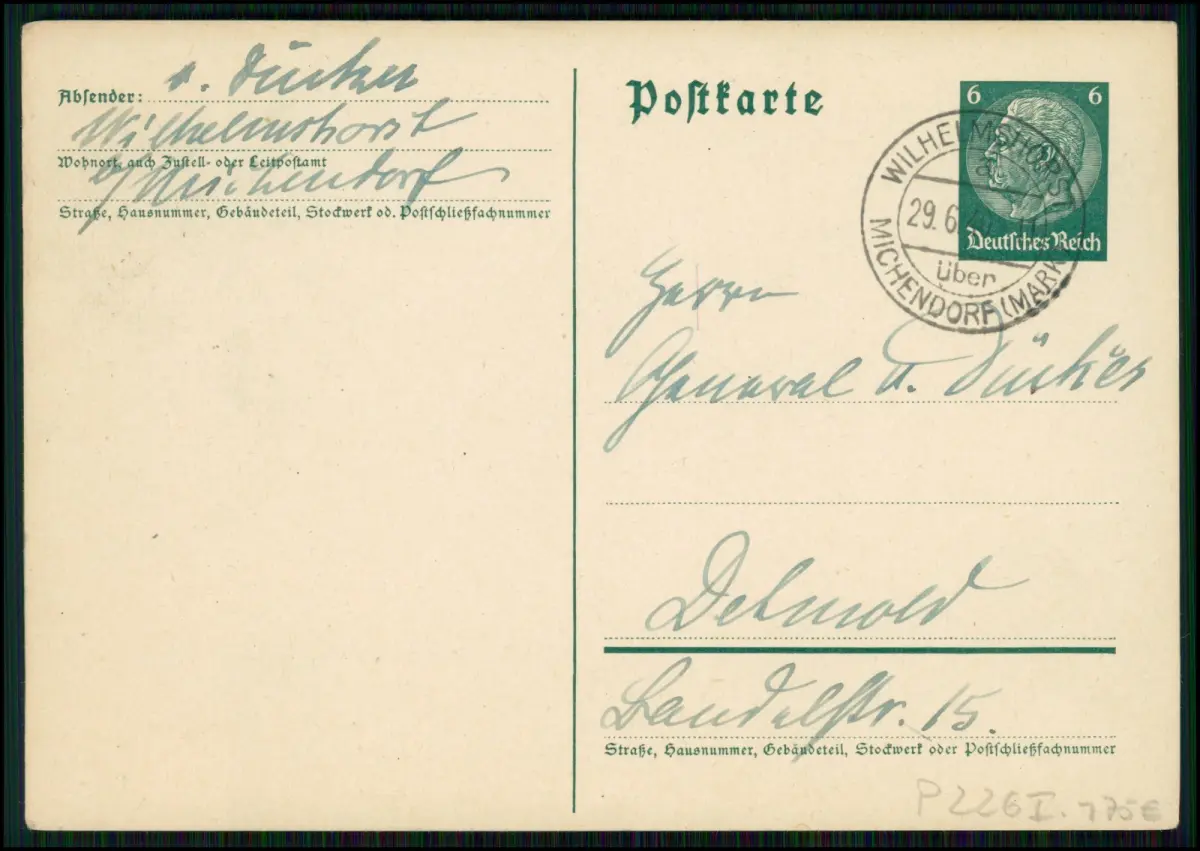 Absender: v. Dücker
Wilhelmshorst
Wohnort, auch Zustell- oder Leitpostamt
b/ Michendorf
Straße, Hausnummer, Gebäudeteil, Stockwerk od. Postschließfachnummer
Postkarte
6 6
Deutsches Reich
WILHELMSHORST
29.6.40
über
MICHENDORF (MARK)
Herrn
General v. Dücker
Detmold
Bandelstr. 15.
Straße, Hausnummer, Gebäudeteil, Stockwerk oder Postschließfachnummer
P226 I. 175€